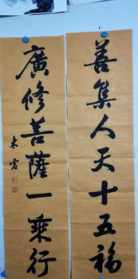 善集人天十五福
廣修菩薩一乘行